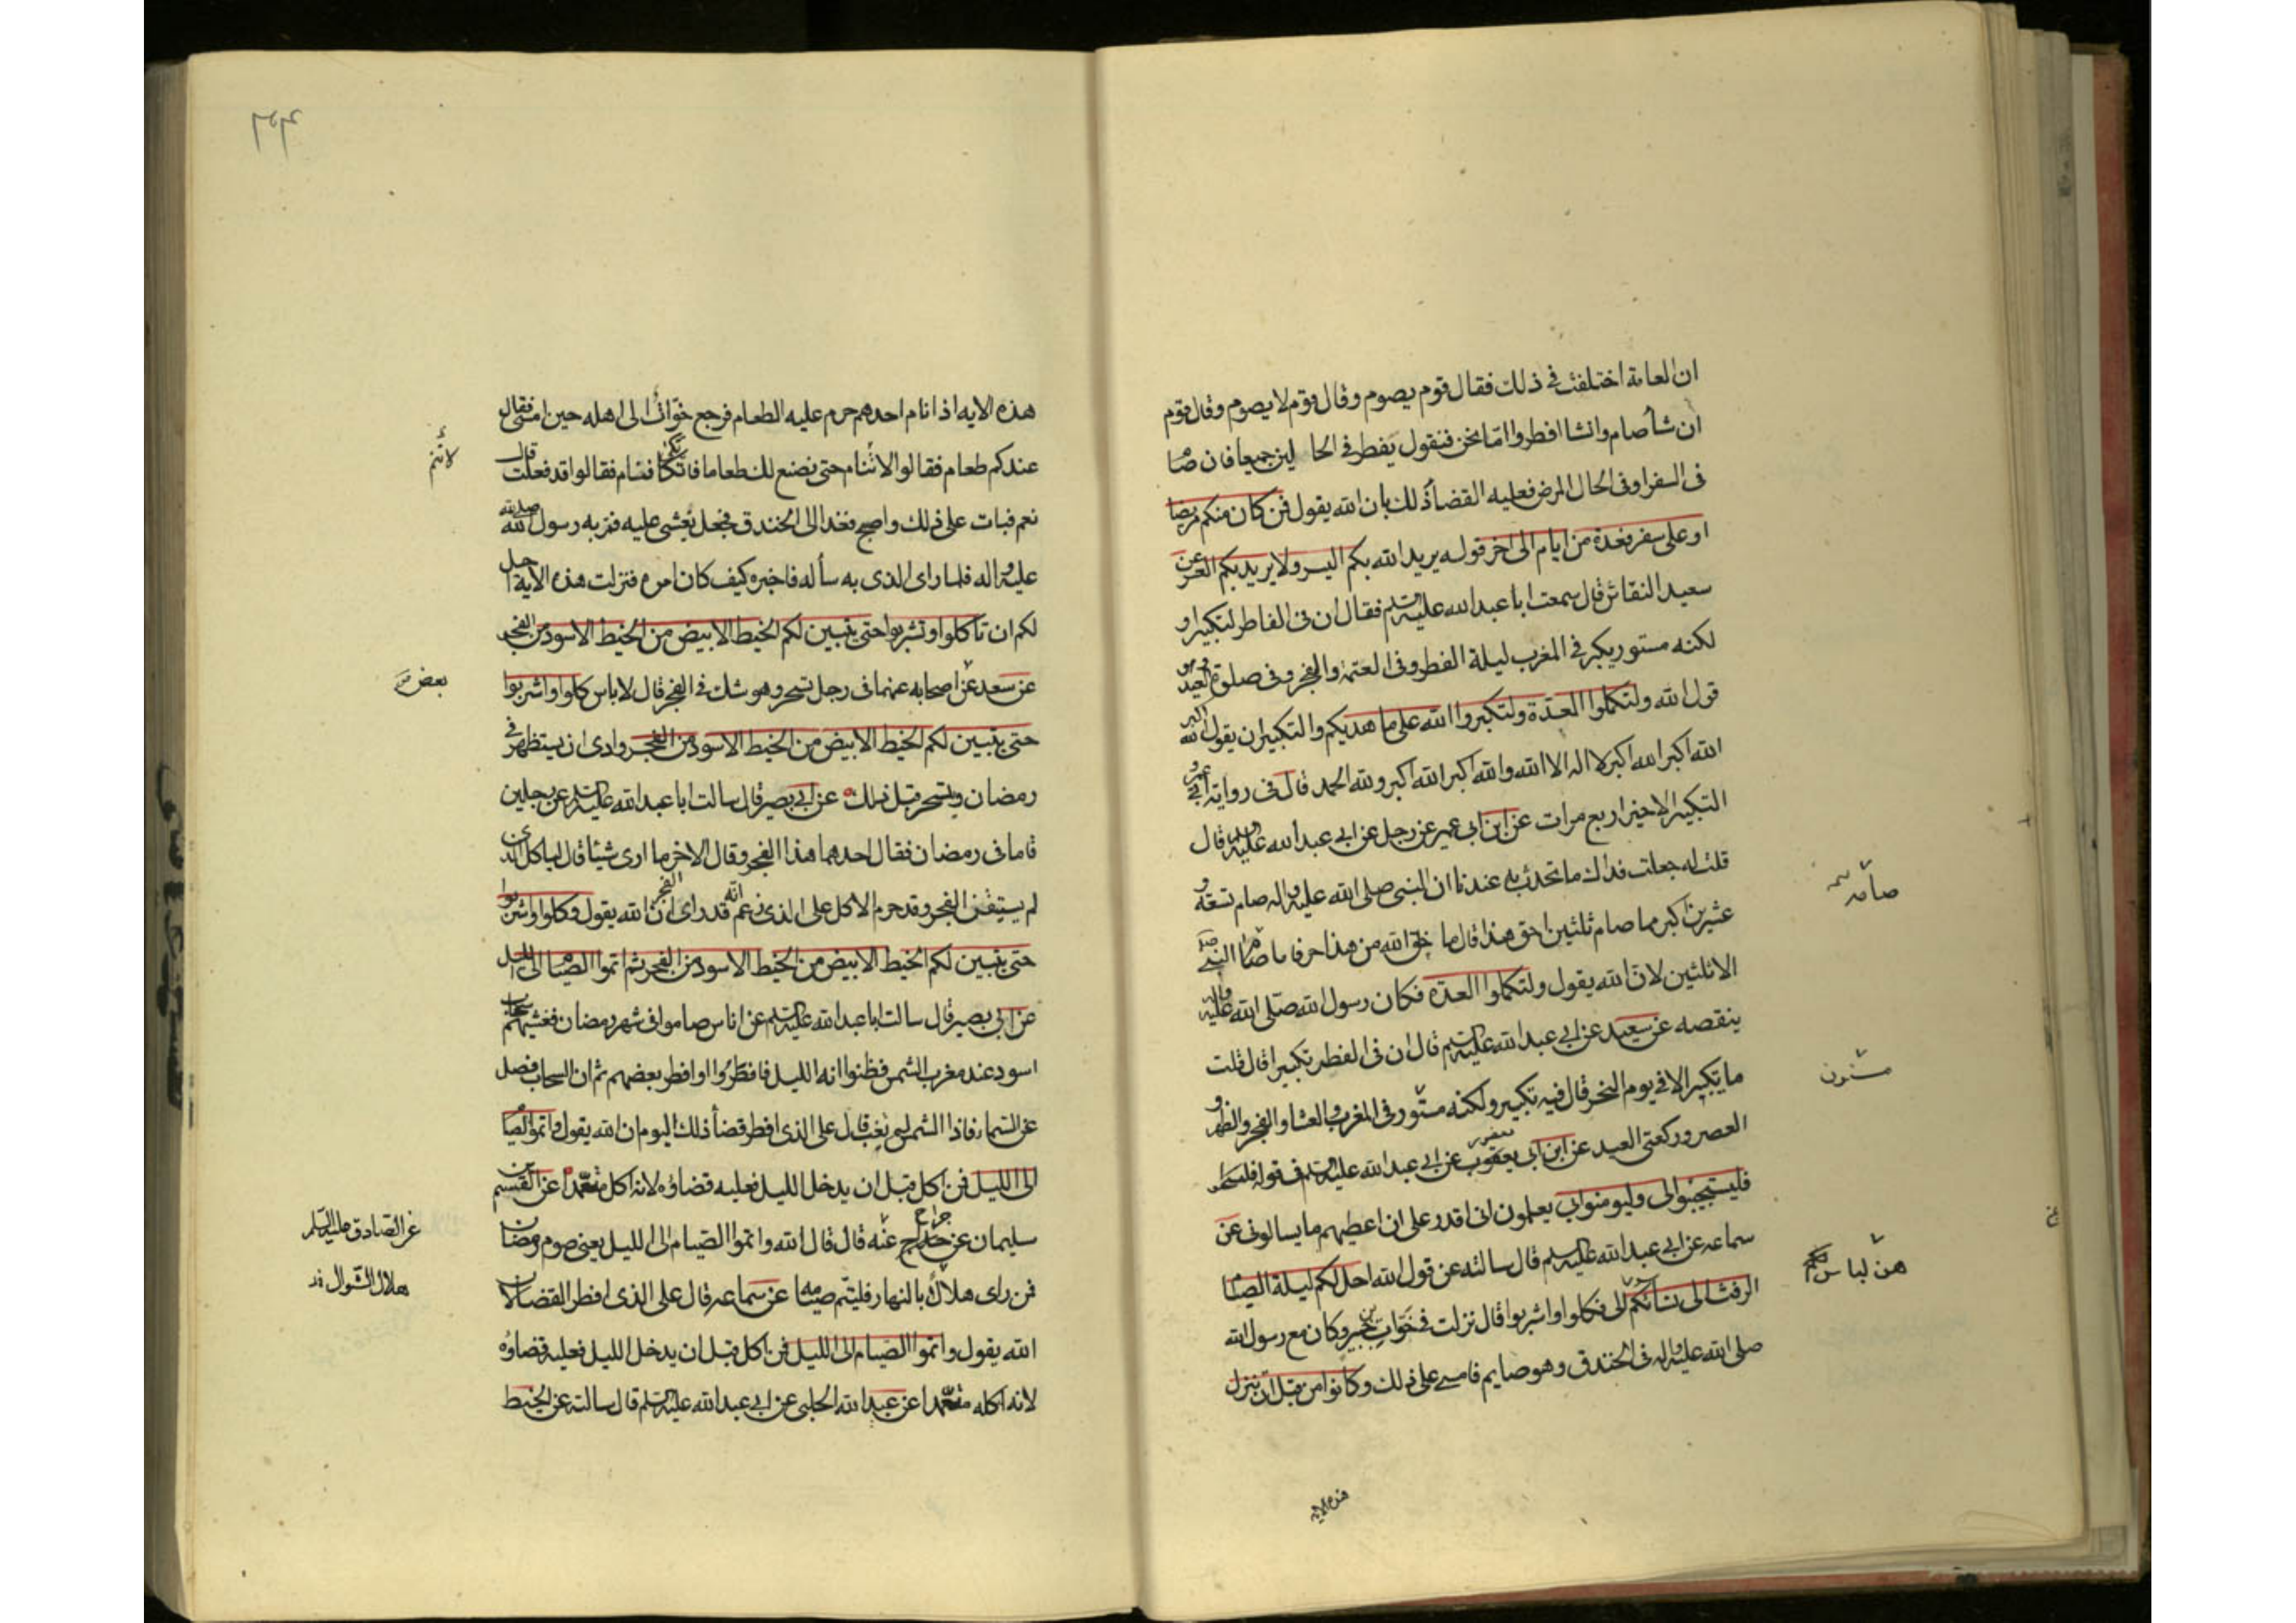 ان العامة اختلفت فى ذلك فقال قوم يصوم وقال قوم لا يصوم وقال قوم
ان شأ صام وان شا افطر واما نحن فنقول يفطر فى الحا لين جميعا فان صام
فى السفر او فى الحال المرض فعليه القضا ذلك بان الله يقول فمن كان منكم مريضا
او على سفر فعدة من ايام الى اخر قوله يريد الله بكم اليسر ولا يريد بكم العسر عن
سعيد النقاش قال سمعت ابا عبد الله عليه السلم فقال ان فى الفاطر لتكبيرا و
لكنه مستور يكبر فى المغرب ليلة الفطر وفى العتمة والفجر وفى صلوة العيد وهو
قول الله ولتكملوا العدة ولتكبروا الله على ما هديكم والتكبير ان يقول الله اكبر
الله اكبر الله اكبر لا اله الا الله والله اكبر الله اكبر ولله الحمد قال فى رواية ابى عمرو
التكبير الاخير اربع مرات عن ابن ابى عمير عن رجل عن ابى عبد الله عليه السلم قال
قلت له جعلت فداك ما تحدث به عندنا ان النبى صلى الله عليه واله صام تسعة و
عشرين اكبر مما صام ثلثين احق هذا قال ما خلق الله من هذا حرفا ما صام النبى
الا ثلثين لان الله يقول ولتكملوا العدة فكان رسول الله صلى الله عليه واله
ينقصه عن سعيد عن ابى عبد الله عليه السلم قال ان فى الفطر تكبيرا قال قلت
ما يكبر الا فى يوم النحر قال فيه تكبير ولكنه مستور فى المغرب والعشا والفجر والظهر و
العصر وركعتى العيد عن ابن ابى يعقوب عن ابى عبد الله عليه السلم فى قوله
فليستجيبوا لى وليومنوا بى يعلمون انى اقدر على ان اعطيهم ما يسالونى عن
سماعه عن ابى عبد الله عليه السلم قال سالته عن قول الله احل لكم ليلة الصيام
الرفث الى نسائكم الى فكلوا واشربوا قال نزلت فى خوات بن جبير وكان مع رسول الله
صلى الله عليه واله فى الخندق وهو صايم فامسى على ذلك وكانوا من قبل ان تنزل
هذه الايه
صامه
مسنون
هن لباس لكم
هذه الايه اذا نام احدهم حرم عليه الطعام فرجع خوات الى اهله حين امسى فقال
عندكم طعام فقالوا لا تنام حتى نصنع لك طعاما فاتكا فنام فقالوا قد فعلت قال
نعم فبات على ذلك واصبح فغدا الى الخندق فجعل يغشى عليه فمر به رسول الله صلى الله
عليه واله فلما راى الذى به سأله فاخبره كيف كان امره فنزلت هذه الاية احل
لكم ان تاكلوا وتشربوا حتى يتبين لكم الخيط الابيض من الخيط الاسود من الفجر
عن سعد عن اصحابه عنهما فى رجل تسحر وهو شك فى الفجر قال لا باس كلوا واشربوا
حتى يتبين لكم الخيط الابيض من الخيط الاسود من الفجر وارى ان يستظهر فى
رمضان ويتسحر قبل ذلك عن ابى بصير قال سالت ابا عبد الله عليه السلم عن رجلين
قاما فى رمضان فقال احدهما هذا الفجر وقال الاخر ما ارى شيئا قال لياكل الذى
لم يستيقن الفجر وقد حرم الاكل على الذى زعم انه قد راى الفجر ان الله يقول وكلوا واشربوا
حتى يتبين لكم الخيط الابيض من الخيط الاسود من الفجر ثم اتموا الصيام الى الليل
عن ابى بصير قال سالت ابا عبد الله عليه السلم عن اناس صاموا فى شهر رمضان فغشيهم سحاب
اسود عند مغرب الشمس فظنوا انه الليل فافطروا او افطر بعضهم ثم ان السحاب فصل
عن السماء فاذا الشمس لم تغب قال على الذى افطر قضأ ذلك اليوم ان الله يقول واتموا الصيام
الى الليل فمن اكل قبل ان يدخل الليل فعليه قضاؤه لانه اكل متعمدا عن القسم بن
سليمان عن جراح عنه قال قال الله واتموا الصيام الى الليل يعنى صوم رمضان
فمن راى هلال بالنهار فليتم صيامه عن سماعه قال على الذى افطر القضا لان
الله يقول واتموا الصيام الى الليل فمن اكل قبل ان يدخل الليل فعليه قضاؤه
لانه اكله متعمدا عن عبيد الله الحلبى عن ابى عبد الله عليه السلم قال سالته عن الخيط
بعض
عن الصادق عليه السلم
هلال الشوال